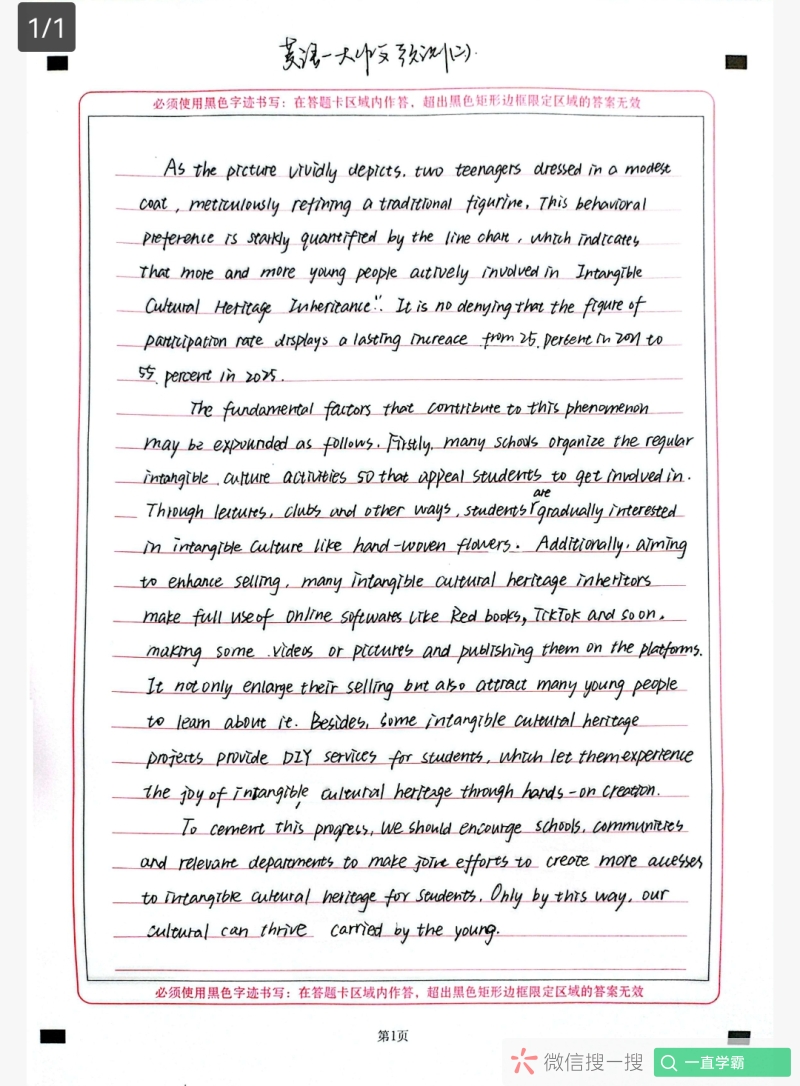 1/1
英语一大作文预测(二).
必须使用黑色字迹书写：在答题卡区域内作答，超出黑色矩形边框限定区域的答案无效
As the picture vividly depicts, two teenagers dressed in a modest
coat, meticulously refining a traditional figurine. This behavioral
preference is starkly quantified by the line chart, which indicates
that more and more young people actively involved in Intangible
Cultural Heritage Inheritance". It is no denying that the figure of
participation rate displays a lasting increace from 25 percent in 2021 to
55 percent in 2025.
The fundamental factors that contribute to this phenomenon
may be expounded as follows. Firstly, many schools organize the regular
intangible culture activities so that appeal students to get involved in.
are
Through lectures, clubs and other ways, students gradually interested
in intangible culture like hand-woven flowers. Additionally, aiming
to enhance selling, many intangible cultural heritage inheritors
make full use of online softwares like Red books, TikTok and so on,
making some videos or pictures and publishing them on the platforms.
It not only enlarge their selling but also attract many young people
to learn about it. Besides, some intangible cultural heritage
projects provide DIY services for students, which let them experience
the joy of intangible cultural heritage through hands-on creation.
To cement this progress, we should encourge schools, communities
and relevant departments to make joint efforts to create more accesses
to intangible cultural heritage for students. Only by this way, our
cultural can thrive carried by the young.
必须使用黑色字迹书写：在答题卡区域内作答，超出黑色矩形边框限定区域的答案无效
第1页
微信搜一搜
一直学霸